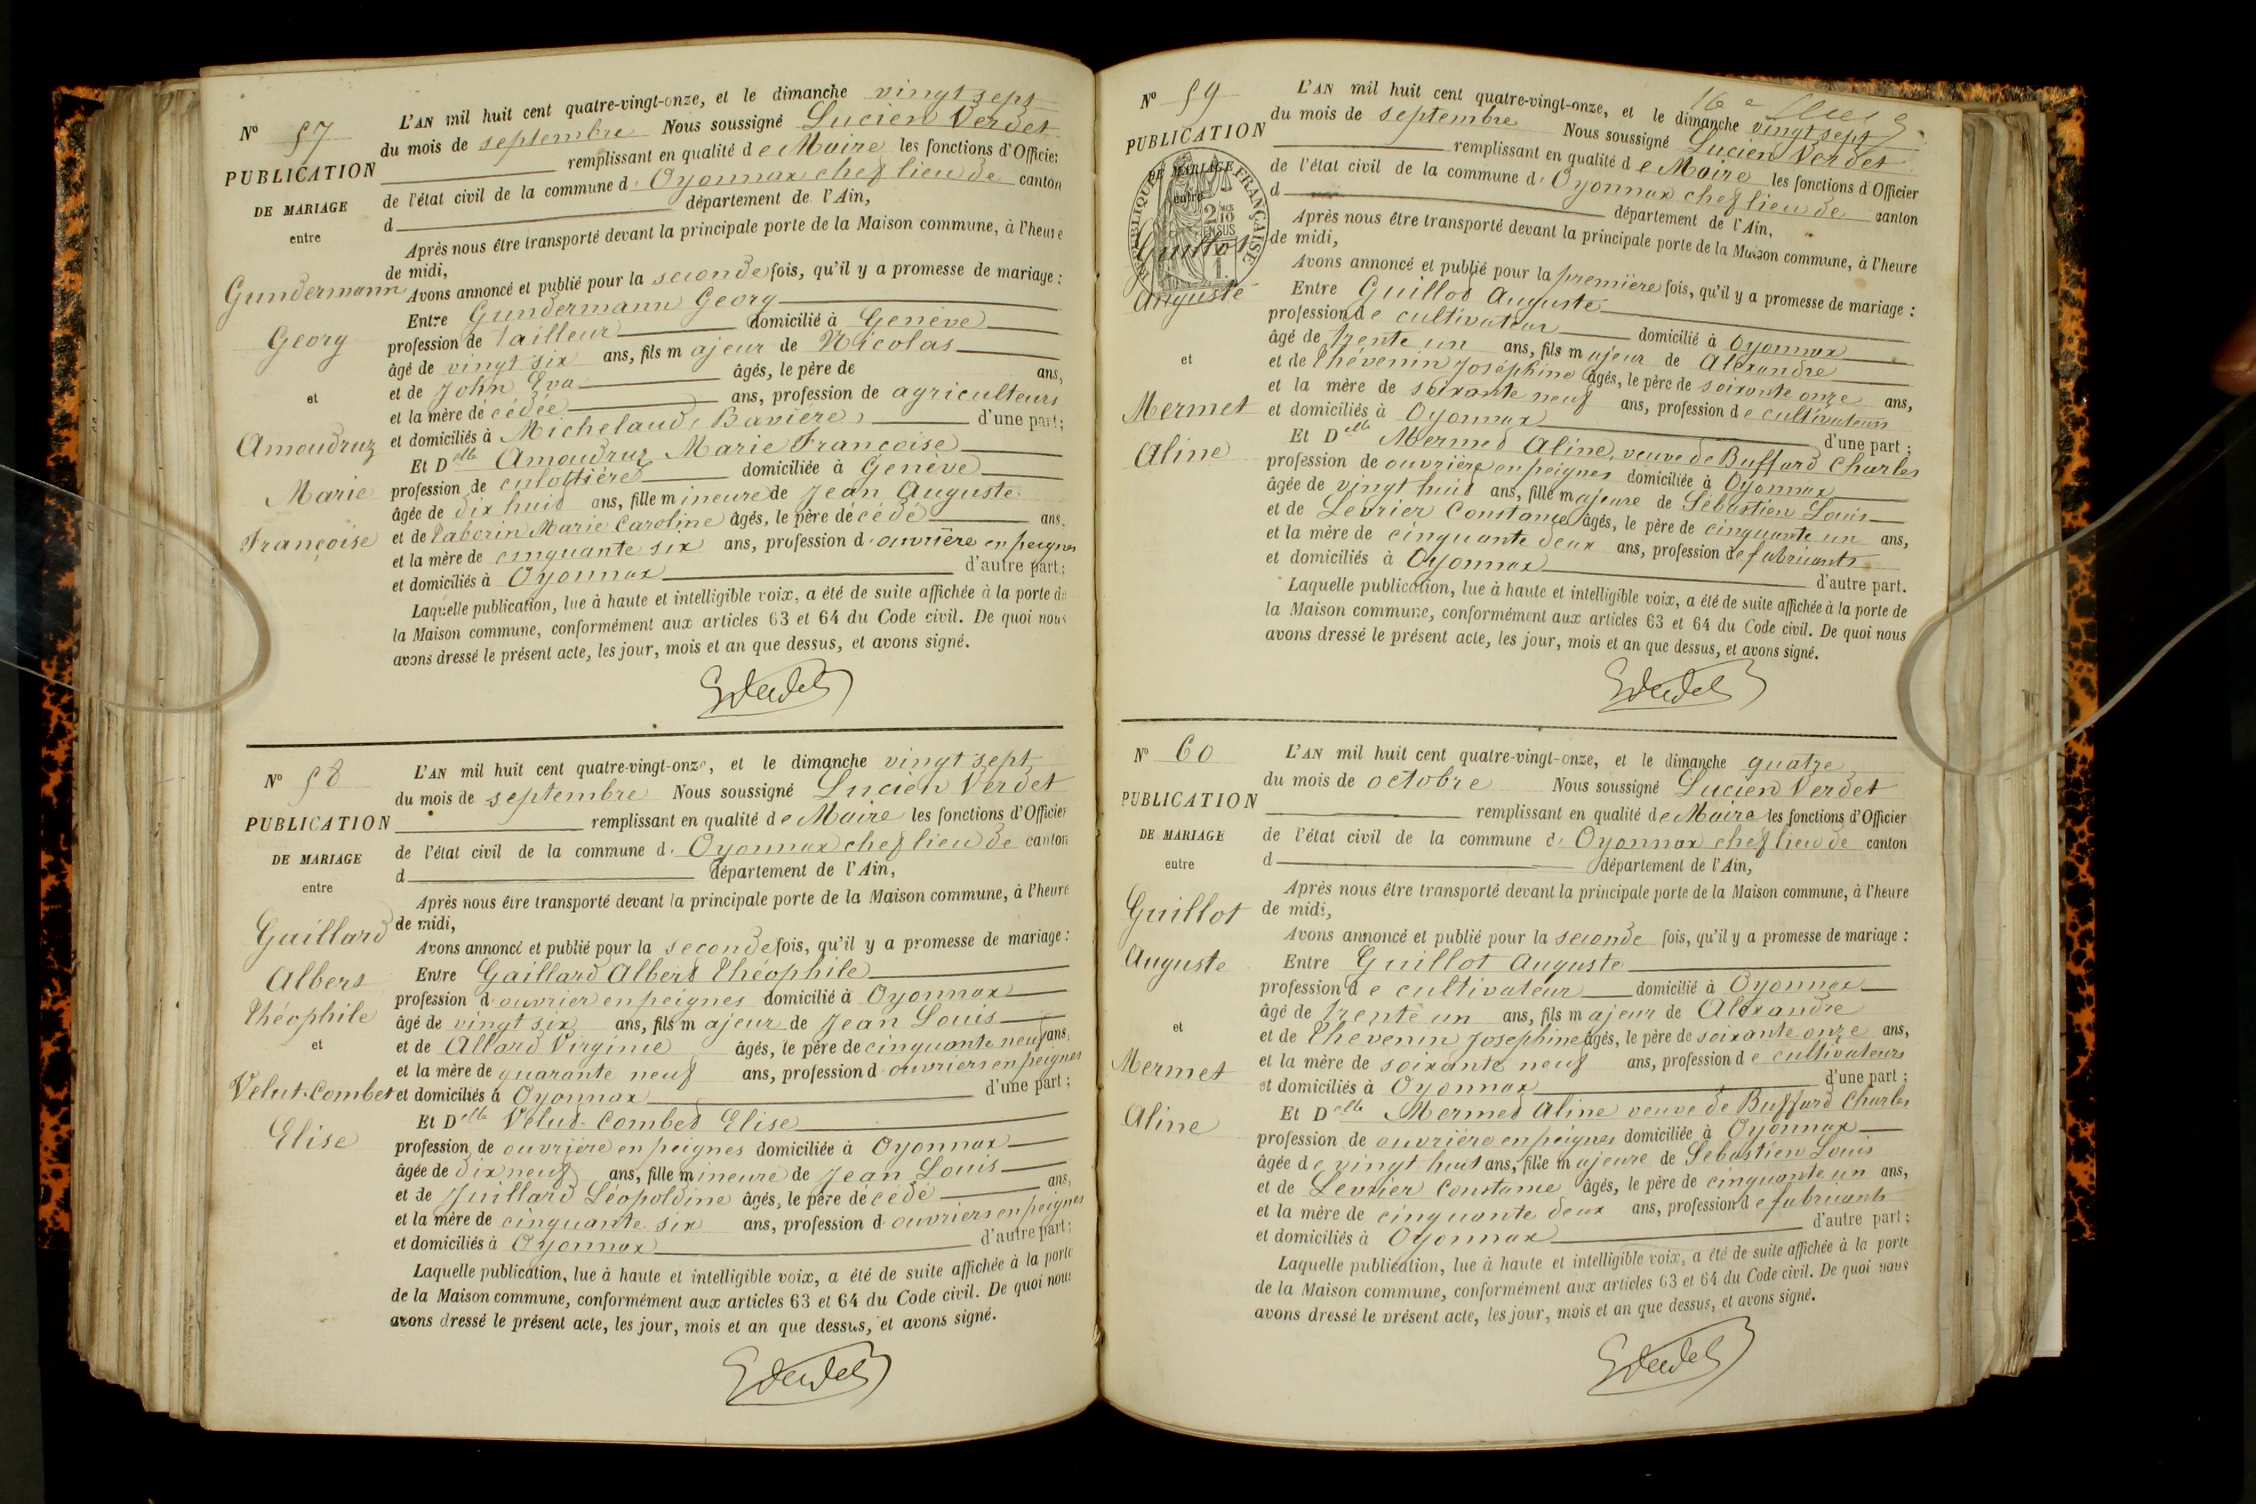 N° 57
PUBLICATION
DE MARIAGE
entre
Gundermann
Georg
et
Amoudruz
Marie
Françoise
L'AN mil huit cent quatre-vingt-onze, et le dimanche vingt sept
du mois de septembre Nous soussigné Lucien Verdet
remplissant en qualité de Maire les fonctions d'Officier
de l'état civil de la commune d' Oyonnax chef lieu de canton
d département de l'Ain,
Après nous être transporté devant la principale porte de la Maison commune, à l'heure
de midi,
Avons annoncé et publié pour la seconde fois, qu'il y a promesse de mariage :
Entre Gundermann Georg
profession de tailleur domicilié à Genève
âgé de vingt six ans, fils majeur de Nicolas
et de John Eva âgés, le père de ans,
et la mère de cédée ans, profession de agriculteurs
et domiciliés à Michelaud, Bavière, d'une part;
Et Delle Amoudruz Marie Françoise
profession de culottière domiciliée à Genève
âgée de dix huit ans, fille mineure de Jean Auguste
et de Taborin Marie Caroline âgés, le père décédé ans,
et la mère de cinquante six ans, profession d' ouvrière en peignes
et domiciliés à Oyonnax d'autre part;
Laquelle publication, lue à haute et intelligible voix, a été de suite affichée à la porte de
la Maison commune, conformément aux articles 63 et 64 du Code civil. De quoi nous
avons dressé le présent acte, les jour, mois et an que dessus, et avons signé.
N° 58
PUBLICATION
DE MARIAGE
entre
Gaillard
Albert
Théophile
et
Velut-Combet
Elise
L'AN mil huit cent quatre-vingt-onze, et le dimanche vingt sept
du mois de septembre Nous soussigné Lucien Verdet
remplissant en qualité de Maire les fonctions d'Officier
de l'état civil de la commune d' Oyonnax chef lieu de canton
d département de l'Ain,
Après nous être transporté devant la principale porte de la Maison commune, à l'heure
de midi,
Avons annoncé et publié pour la seconde fois, qu'il y a promesse de mariage :
Entre Gaillard Albert Théophile
profession d' ouvrier en peignes domicilié à Oyonnax
âgé de vingt six ans, fils majeur de Jean Louis
et de Allard Virginie âgés, le père de cinquante neuf ans,
et la mère de quarante neuf ans, profession d' ouvriers en peignes
et domiciliés à Oyonnax d'une part;
Et Delle Velut-Combet Elise
profession de ouvrière en peignes domiciliée à Oyonnax
âgée de dix neuf ans, fille mineure de Jean Louis
et de Juillard Léopoldine âgés, le père décédé ans,
et la mère de cinquante six ans, profession d' ouvriers en peignes
et domiciliés à Oyonnax d'autre part;
Laquelle publication, lue à haute et intelligible voix, a été de suite affichée à la porte
de la Maison commune, conformément aux articles 63 et 64 du Code civil. De quoi nous
avons dressé le présent acte, les jour, mois et an que dessus, et avons signé.
N° 59
PUBLICATION
DE MARIAGE
entre
RÉPUBLIQUE FRANÇAISE
Guillot
Auguste
et
Mermet
Aline
16e
L'AN mil huit cent quatre-vingt-onze, et le dimanche vingt sept
du mois de septembre Nous soussigné Lucien Verdet
remplissant en qualité de Maire les fonctions d'Officier
de l'état civil de la commune d' Oyonnax chef lieu de canton
d département de l'Ain,
Après nous être transporté devant la principale porte de la Maison commune, à l'heure
de midi,
Avons annoncé et publié pour la première fois, qu'il y a promesse de mariage :
Entre Guillot Auguste
profession de cultivateur domicilié à Oyonnax
âgé de trente un ans, fils majeur de Alexandre
et de Thévenin Joséphine âgés, le père de soixante onze ans,
et la mère de soixante neuf ans, profession de cultivateurs
et domiciliés à Oyonnax d'une part;
Et Delle Mermet Aline, veuve de Buffard Charles
profession de ouvrière en peignes domiciliée à Oyonnax
âgée de vingt huit ans, fille majeure de Sébastien Louis
et de Levrier Constance âgés, le père de cinquante un ans,
et la mère de cinquante deux ans, profession de fabricants
et domiciliés à Oyonnax d'autre part.
Laquelle publication, lue à haute et intelligible voix, a été de suite affichée à la porte de
la Maison commune, conformément aux articles 63 et 64 du Code civil. De quoi nous
avons dressé le présent acte, les jour, mois et an que dessus, et avons signé.
N° 60
PUBLICATION
DE MARIAGE
entre
Guillot
Auguste
et
Mermet
Aline
L'AN mil huit cent quatre-vingt-onze, et le dimanche quatre
du mois de octobre Nous soussigné Lucien Verdet
remplissant en qualité de Maire les fonctions d'Officier
de l'état civil de la commune d' Oyonnax chef lieu de canton
d département de l'Ain,
Après nous être transporté devant la principale porte de la Maison commune, à l'heure
de midi,
Avons annoncé et publié pour la seconde fois, qu'il y a promesse de mariage :
Entre Guillot Auguste
profession de cultivateur domicilié à Oyonnax
âgé de trente un ans, fils majeur de Alexandre
et de Thevenin Josephine âgés, le père de soixante onze ans,
et la mère de soixante neuf ans, profession de cultivateurs
et domiciliés à Oyonnax d'une part;
Et Delle Mermet Aline veuve de Buffard Charles
profession de ouvrière en peignes domiciliée à Oyonnax
âgée de vingt huit ans, fille majeure de Sebastien Louis
et de Levrier Constance âgés, le père de cinquante un ans,
et la mère de cinquante deux ans, profession de fabricants
et domiciliés à Oyonnax d'autre part;
Laquelle publication, lue à haute et intelligible voix, a été de suite affichée à la porte
de la Maison commune, conformément aux articles 63 et 64 du Code civil. De quoi nous
avons dressé le présent acte, les jour, mois et an que dessus, et avons signé.